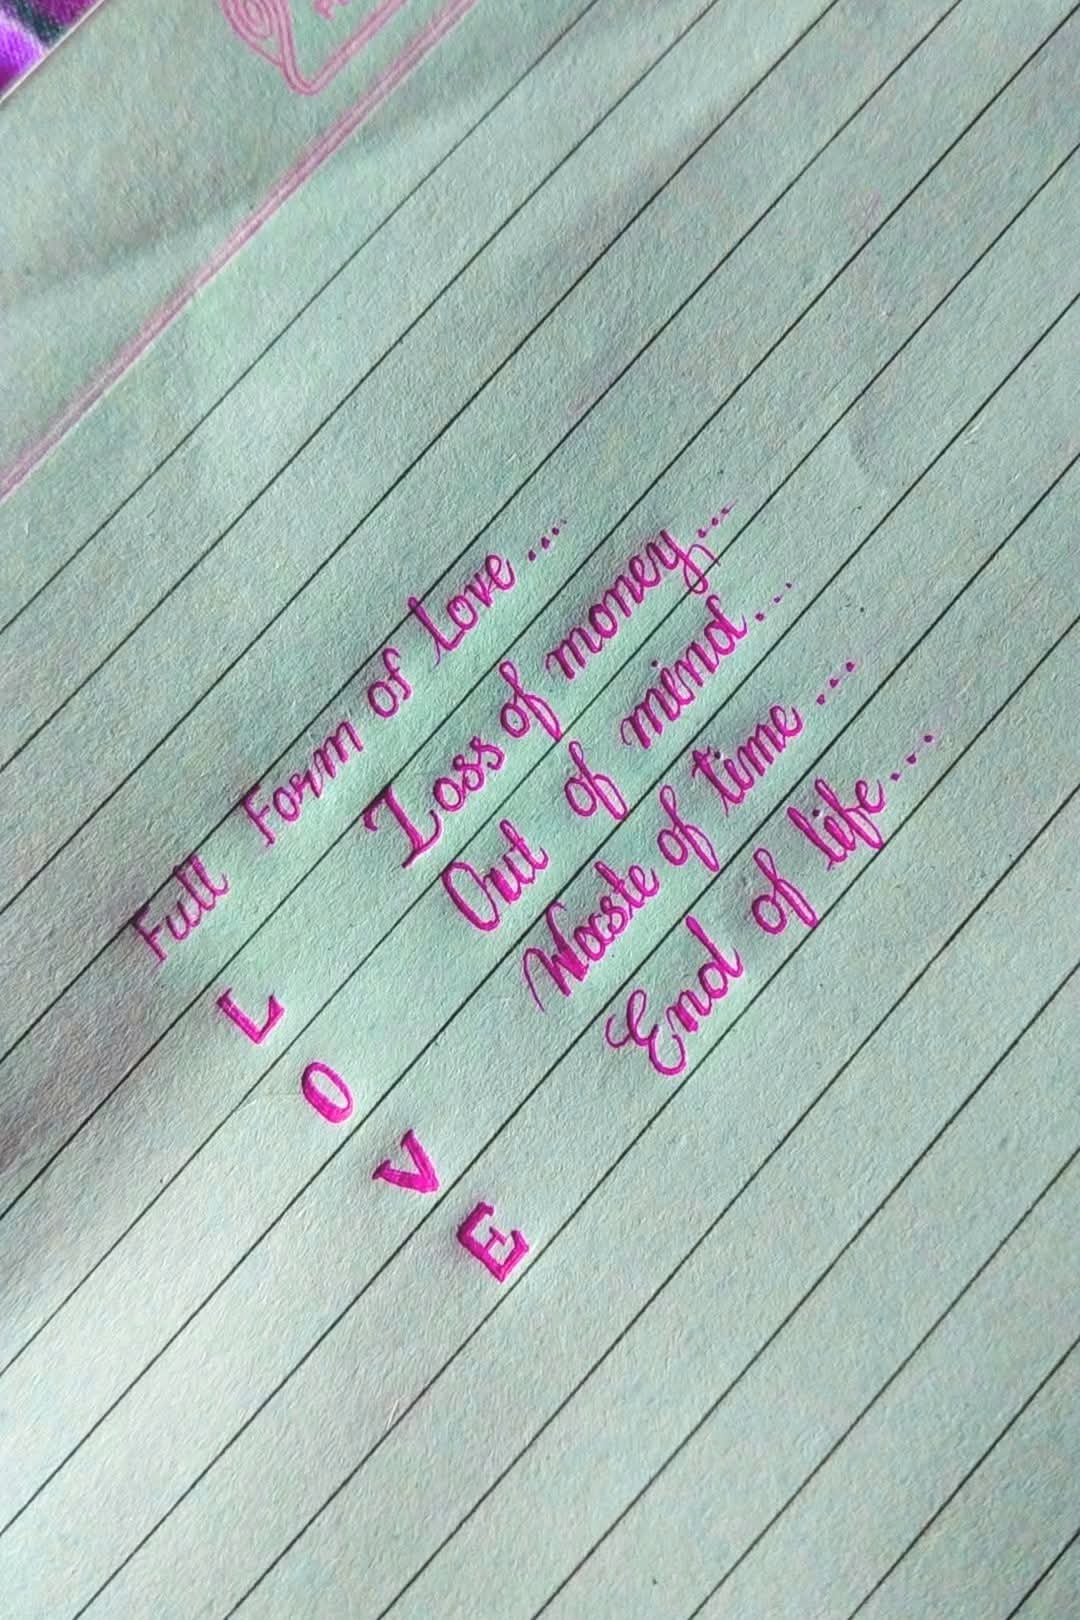 Full Form of Love....
L Loss of money...
O Out of mind...
V Waste of time...
E End of life....